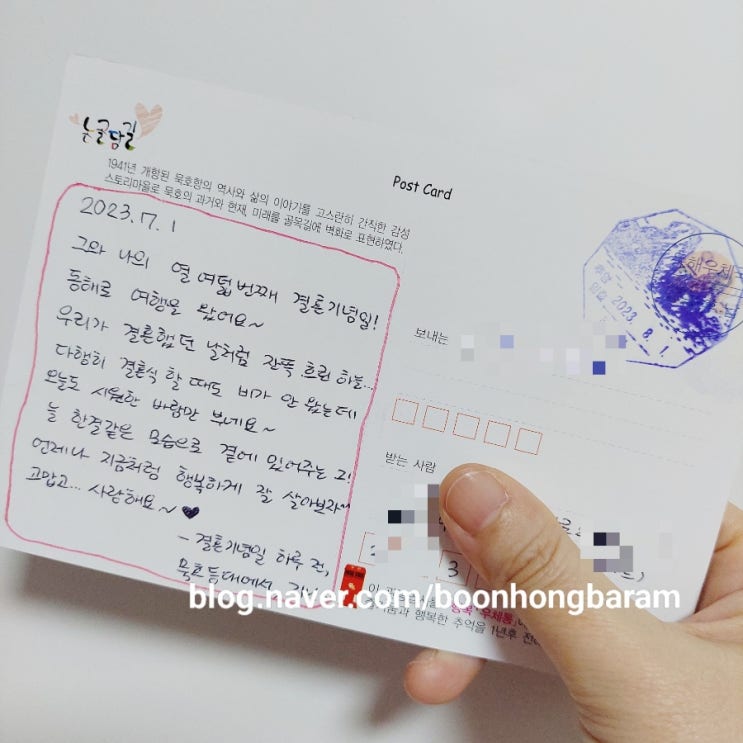 논골담길
1941년 개항된 묵호항의 역사와 삶의 이야기를 고스란히 간직한 감성
스토리마을로 묵호의 과거와 현재, 미래를 골목길에 벽화로 표현하였다.
Post Card
2023.7.1
그와 나의 열여덟번째 결혼기념일!
동해로 여행을 왔어요~
우리가 결혼했던 날처럼 잔뜩 흐린 하늘...
다행히 결혼식 할 때도 비가 안 왔는데
오늘도 시원한 바람만 부네요~
늘 한결같은 모습으로 곁에 있어주는 그!
언제나 지금처럼 행복하게 잘 살아보자~
고맙고... 사랑해요~ ♥
- 결혼기념일 하루 전,
묵호등대에서
2023. 8. 1.
보내는
받는 사람
3
행복 우체통
행복한 추억을 1년후
blog.naver.com/boonhongbaram